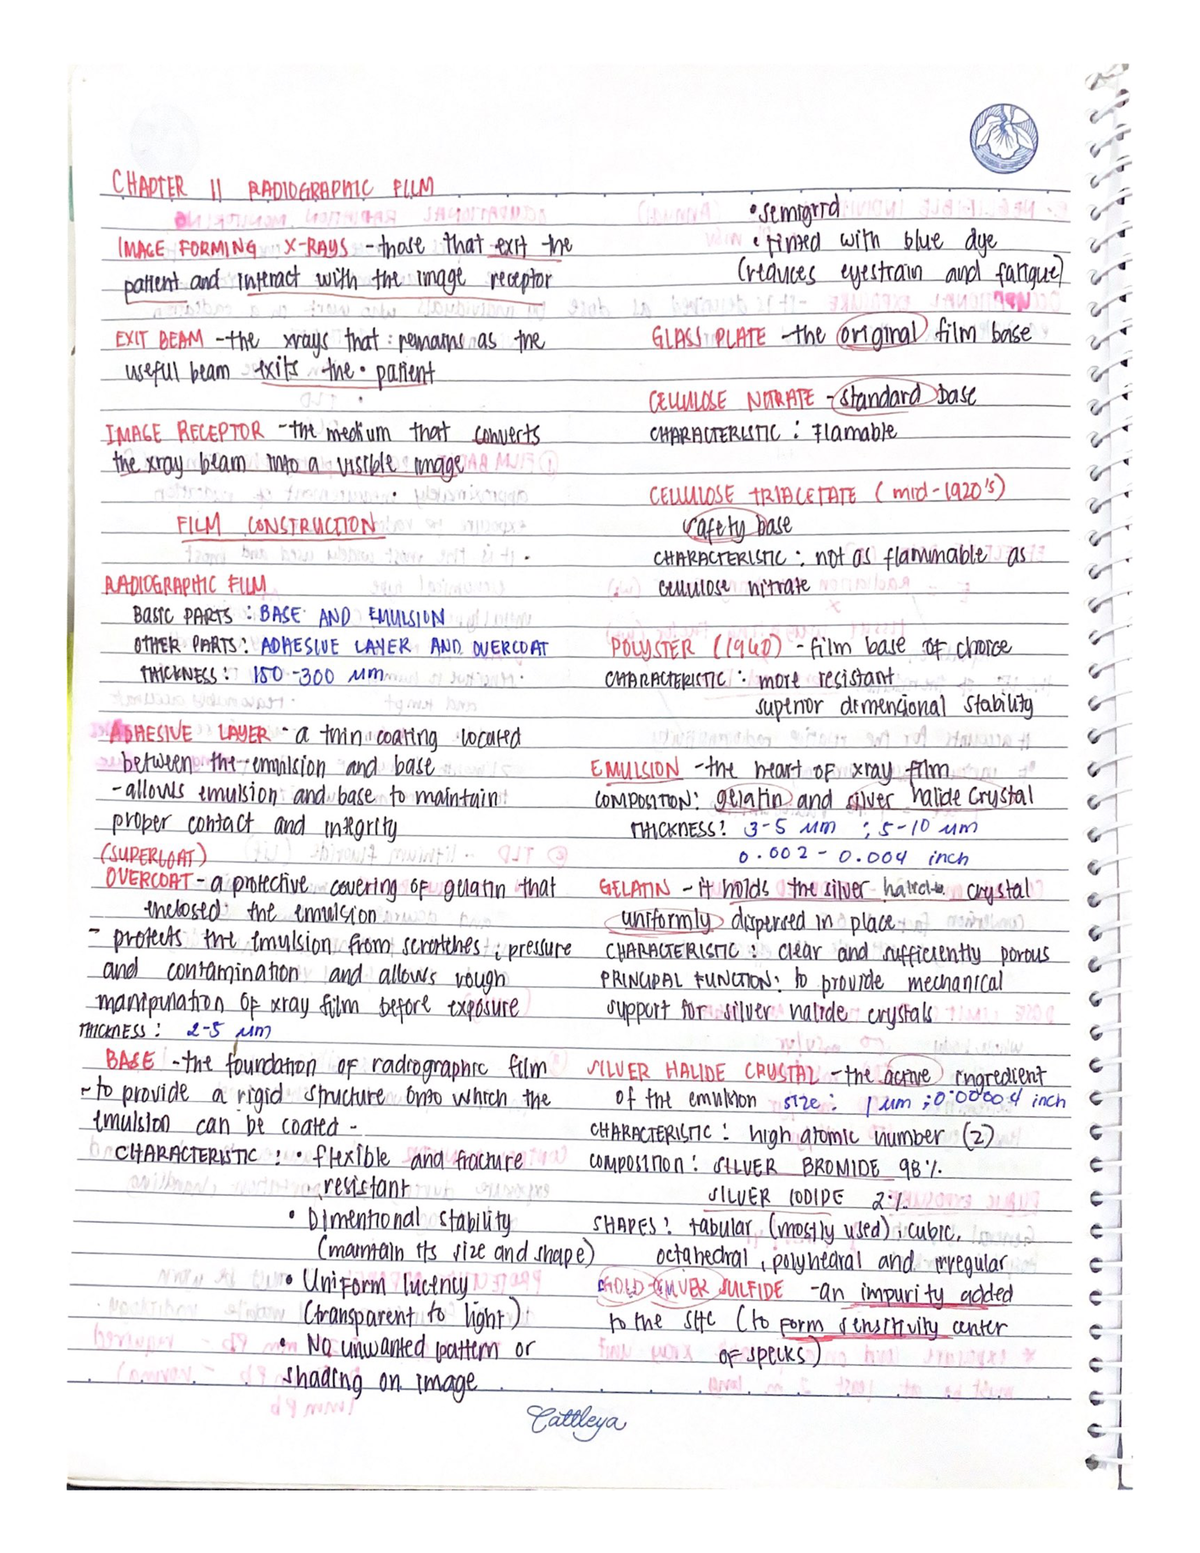 CHAPTER 11 RADIOGRAPHIC FILM
IMAGE FORMING X-RAYS - those that exit the
patient and interact with the image receptor
EXIT BEAM - the xrays that remains as the
useful beam exits the patient
IMAGE RECEPTOR - the medium that converts
the xray beam into a visible image
FILM CONSTRUCTION
RADIOGRAPHIC FILM
BASIC PARTS : BASE AND EMULSION
OTHER PARTS : ADHESIVE LAYER AND OVERCOAT
THICKNESS : 150 - 300 µm
ADHESIVE LAYER - a thin coating located
between the emulsion and base
- allows emulsion and base to maintain
proper contact and integrity
(SUPERCOAT)
OVERCOAT - a protective covering of gelatin that
enclosed the emulsion
- protects the emulsion from scratches ; pressure
and contamination and allows rough
manipulation of xray film before exposure
THICKNESS : 2-5 µm
BASE - the foundation of radiographic film
- to provide a rigid structure onto which the
emulsion can be coated -
CHARACTERISTIC : • flexible and fracture
resistant
• Dimentional stability
(maintain its size and shape)
• Uniform lucency
(transparent to light)
• No unwanted pattern or
shading on image
• semigrid
• tinted with blue dye
(reduces eyestrain and fatigue)
GLASS PLATE - the original film base
CELLULOSE NITRATE - standard base
CHARACTERISTIC : Flamable
CELLULOSE TRIACETATE (mid-1920's)
safety base
CHARACTERISTIC : not as flammable as
cellulose nitrate
POLYSTER (1960) - film base of choice
CHARACTERISTIC : more resistant
superior dimencional stability
EMULSION - the heart of xray film
COMPOSITON: gelatin and silver halide crystal
THICKNESS: 3-5 µm ; 5-10 µm
0.002 - 0.004 inch
GELATIN - it holds the silver halide crystal
uniformly dispersed in place
CHARACTERISTIC : clear and sufficiently porous
PRINCIPAL FUNCTION: to provide mechanical
support for silver halide crystals
SILVER HALIDE CRYSTAL - the active ingredient
of the emulsion size : 1 µm ; 0.00004 inch
CHARACTERISTIC : high atomic number (2)
COMPOSITION : SILVER BROMIDE 98%
SILVER IODIDE 2%
SHAPES : tabular (mostly used) ; cubic,
octahedral, polyhedral and irregular
GOLD SILVER SULFIDE - an impurity added
to the site (to form sensitivity center
of specks)
Cattleya